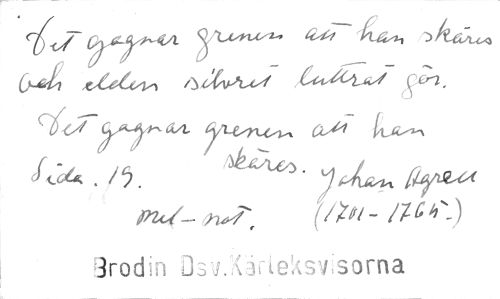 Det gagnar grenen att han skäres
och elden silvret luttrat gör.
Det gagnar grenen att han
skäres.
Sida. 19.
Johan Agrell
mel-not.
(1701-1765.)
Brodin Dsv.Kärleksvisorna